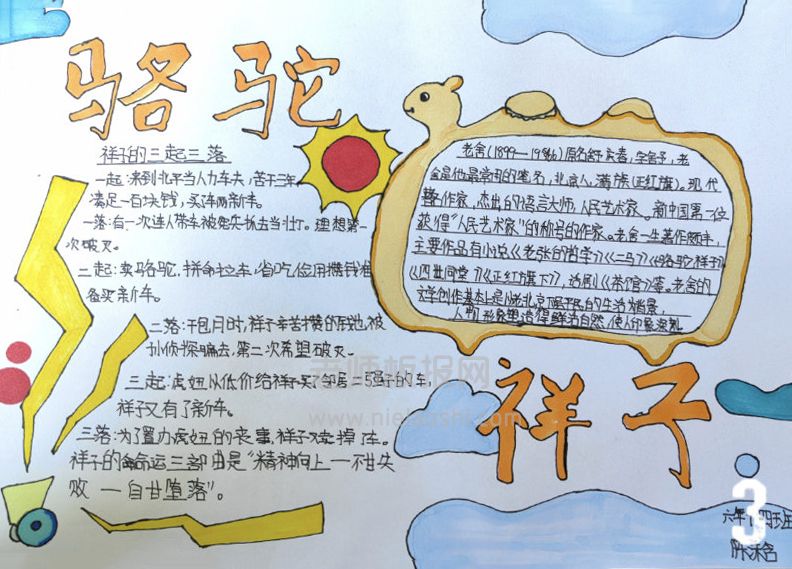 骆驼
祥子的三起三落
一起:来到北平当人力车夫,苦干三年,
满足一百块钱,买了辆新车。
一落:有一次连人带车被宪兵抓去当壮丁。理想第一
次破灭。
二起:卖骆驼,拼命拉车,省吃俭用攒钱准
备买新车。
二落:干包月时,祥子辛苦攒的钱也被
孙侦探骗去,第二次希望破灭。
三起:虎妞以低价给祥子买了邻居二强子的车,
祥子又有了新车。
三落:为了置办虎妞的丧事,祥子又卖掉了车。
祥子的命运三部曲是“精神向上一不甘失
败一自甘堕落”。
老舍(1899—1966)原名舒庆春,字舍予,老
舍是他最常用的笔名,北京人,满族(正红旗)。现代
作家,杰出的语言大师,人民艺术家。新中国第一位
获得“人民艺术家”的称号的作家。老舍一生著作颇丰,
主要作品有小说《老张的哲学》《二马》《骆驼祥子》
《四世同堂》《正红旗下》,话剧《茶馆》等。老舍的
文学创作基本上是以北京底层平民的生活为背景,
人物形象塑造得鲜活自然,使人印象深刻
祥子
老师板报网
3
六年